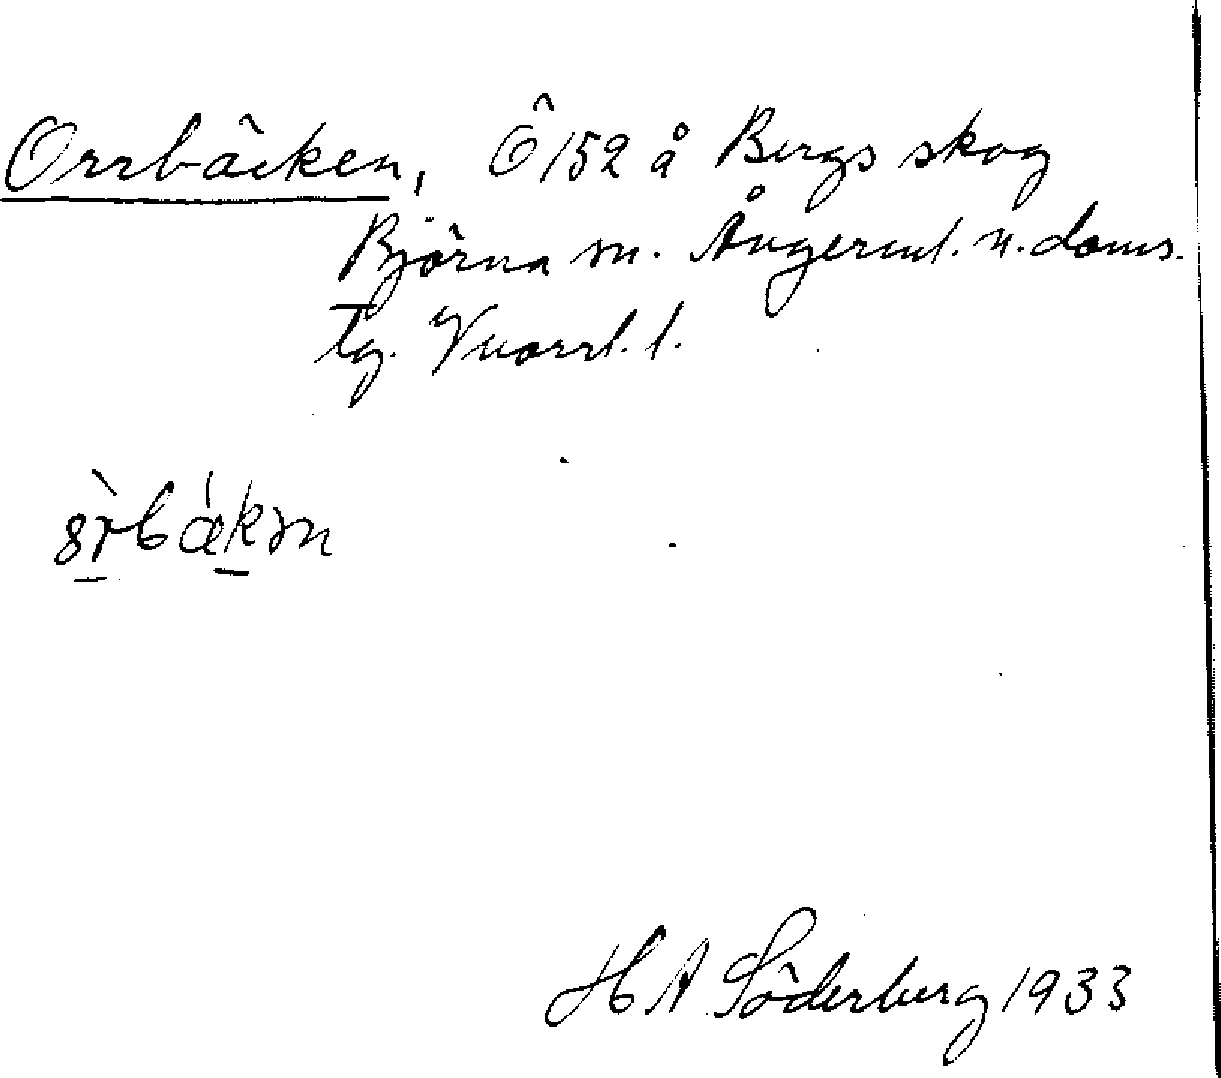 Orrbäcken, Ö 152 å Bergs skog
Björna sn. Ångerml. n. doms.
tg. Vnorrl. l.
ȣ̀rbǽkən
H A Söderberg 1933